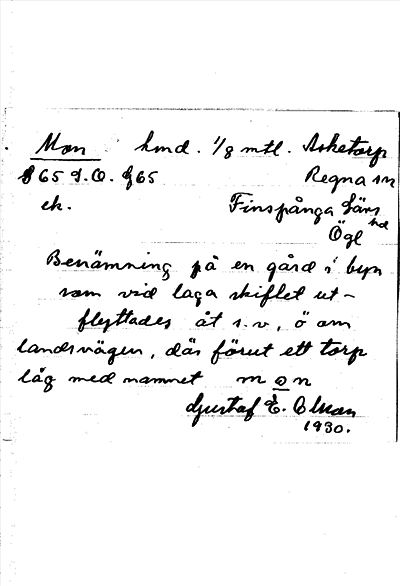 Mon hmd. 1/8 mtl. Asketorp
865 S.O. 865 Regna sn
ek. Finspånga läns hd
Ögl
Benämning på en gård i byn
som vid laga skiftet ut-
flyttades åt s.v, ö om
landsvägen, där förut ett torp
låg med namnet mon
Gustaf E. Olson
1930.